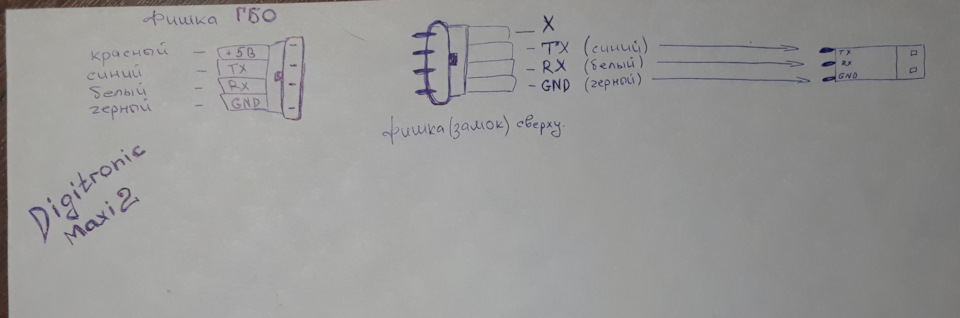 фишка ГБО
красный — +5В
синий — TX
белый — RX
герный — GND
— X
— TX (синий)
— RX (белый)
— GND (герный)
фишка (замок) сверху.
TX
RX
GND
Digitronic
Maxi 2